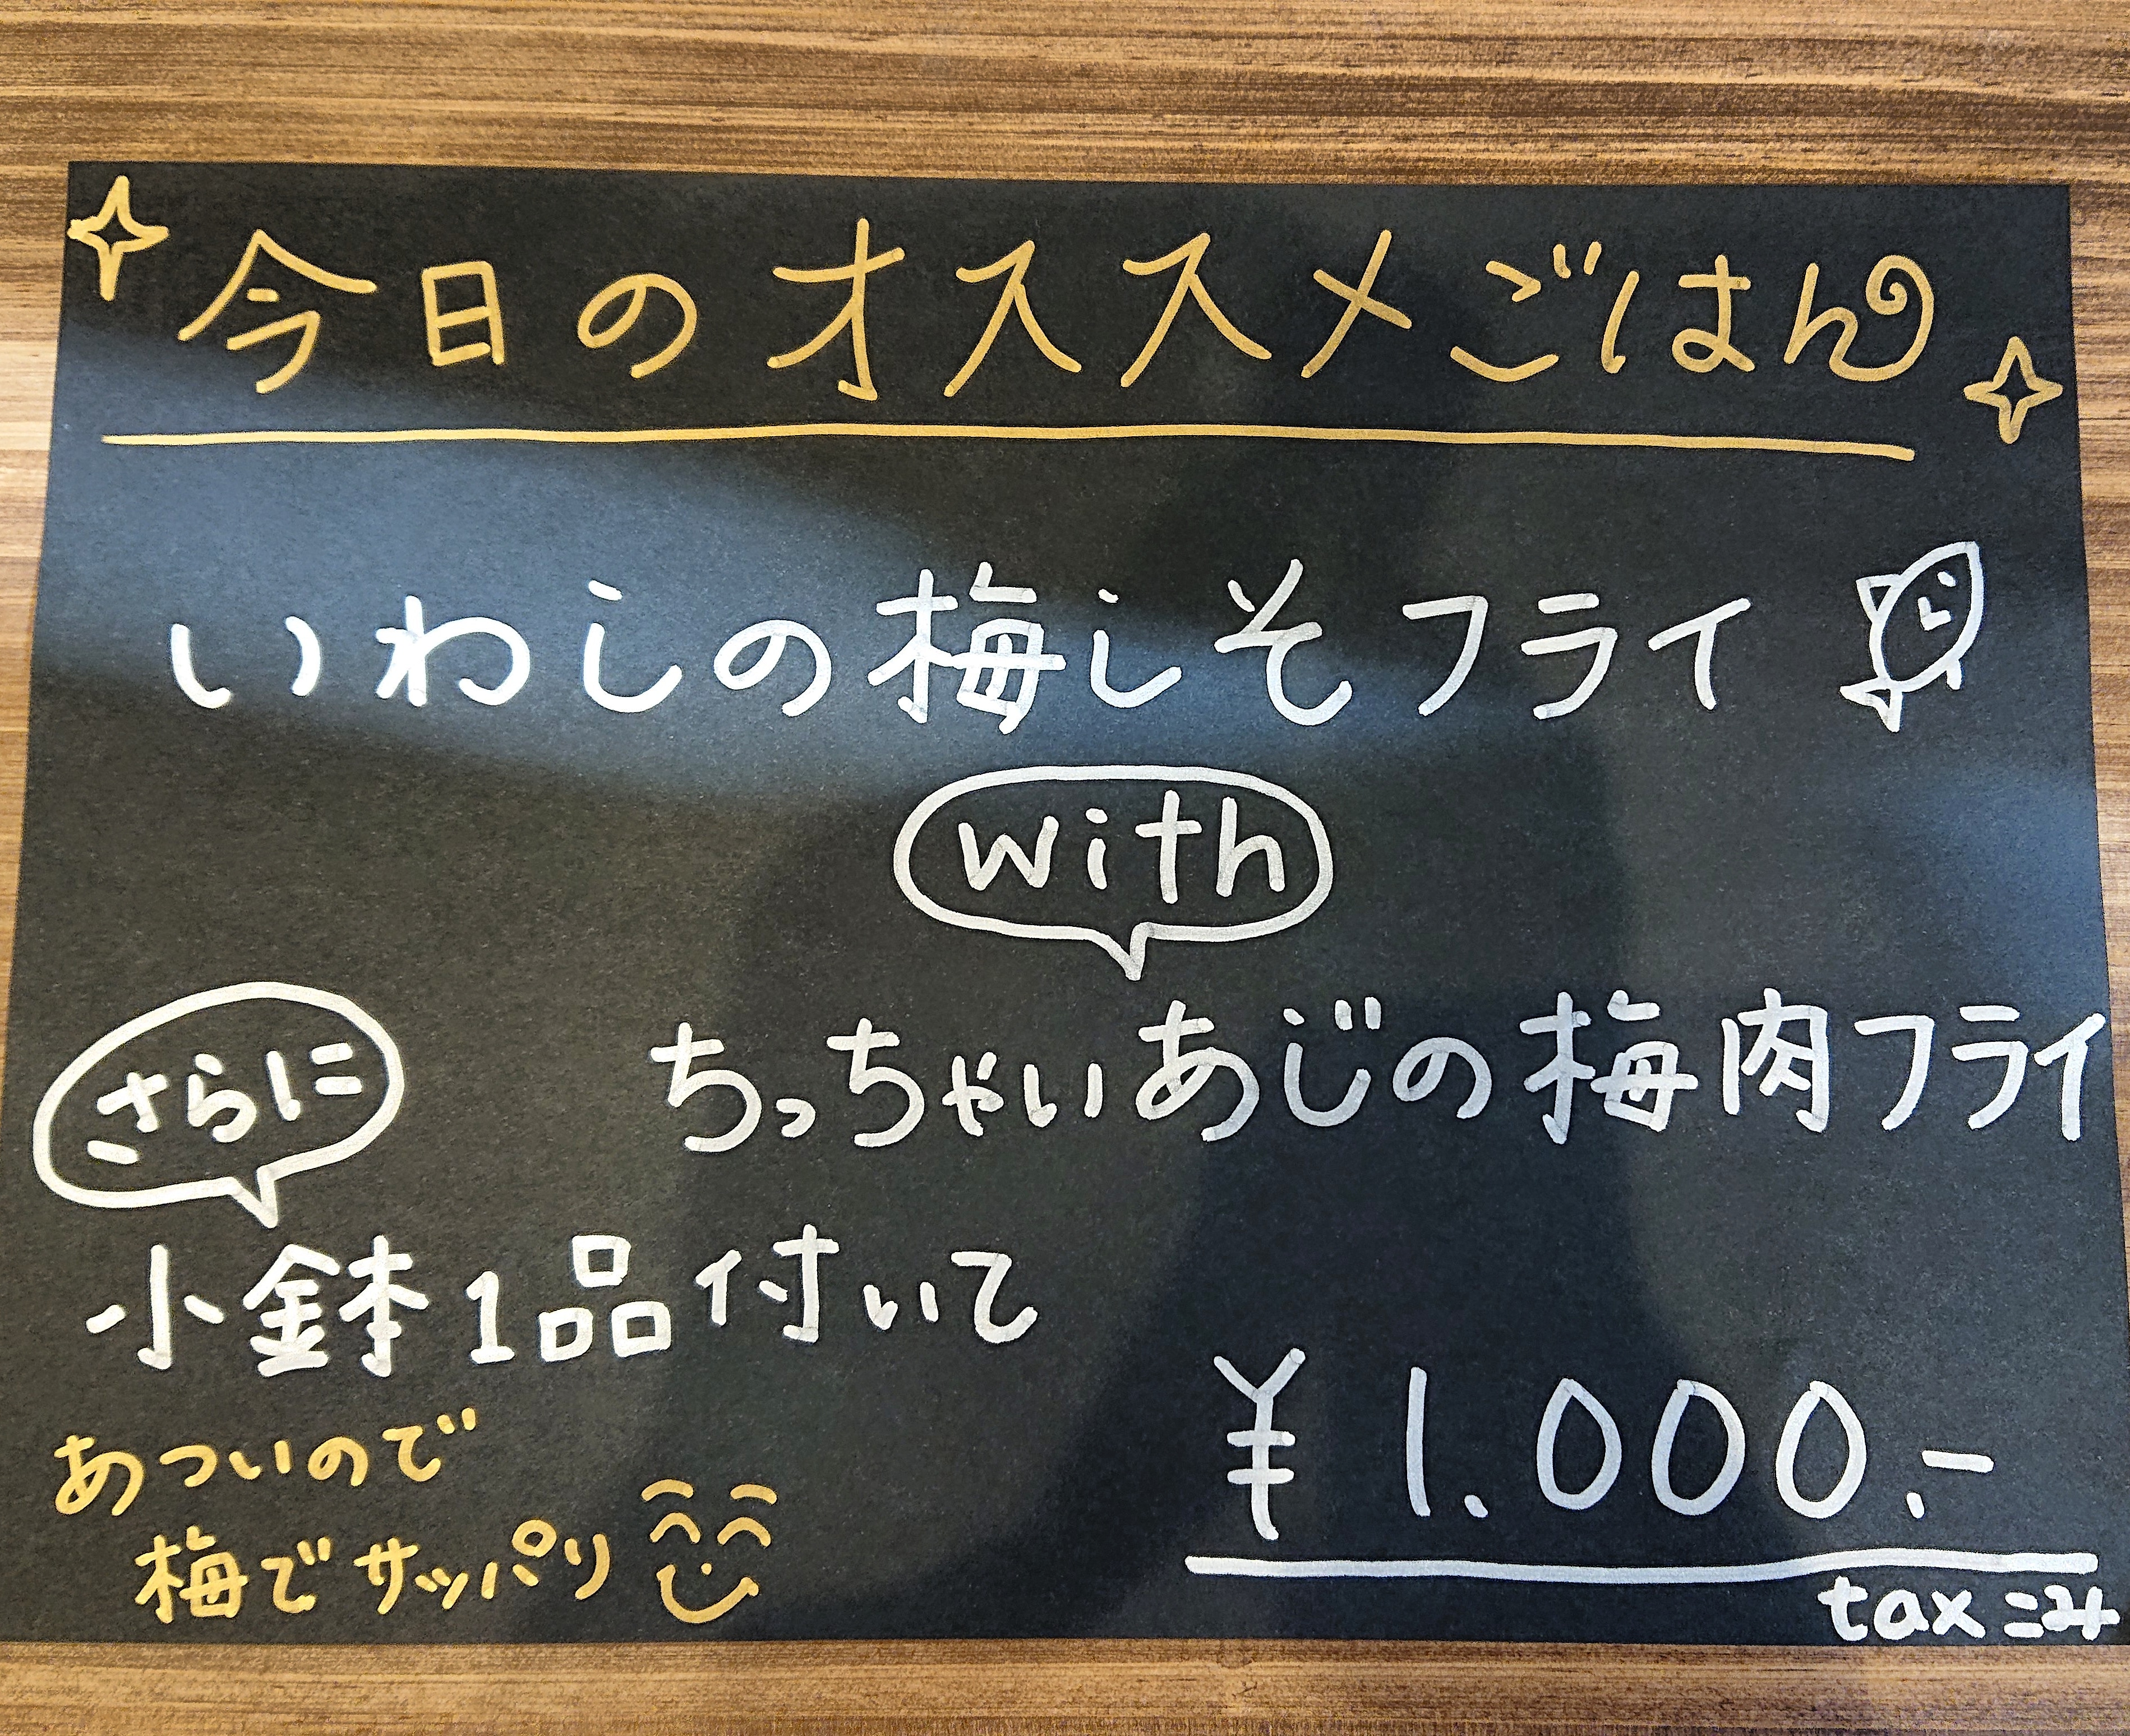 今日のオススメごはん
いわしの梅しそフライ
with
ちっちゃいあじの梅肉フライ
さらに
小鉢1品付いて
¥1.000.-
tax こみ
あついので
梅でサッパリ